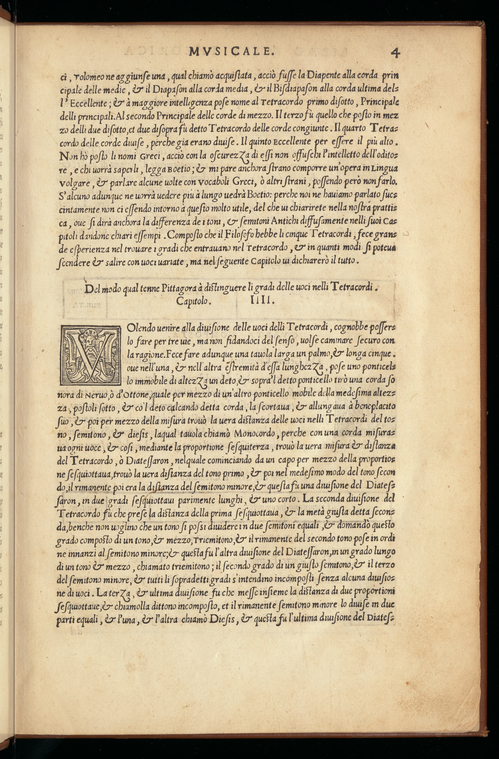 MVSICALE. 4
ci, Tolomeo ne aggiunse una, qual chiamò acquistata, acciò fusse la Diapente alla corda prin
cipale delle medie, & il Diapason alla corda media, & il Bisdiapason alla corda ultima dels
l'Eccellente; & à maggiore intelligenza pose nome al Tetracordo primo disotto, Principale
delli principali. Al secondo Principale delle corde di mezzo. Il terzo fù quello che posto in mez
zo delli due disotto, et due disopra fù detto Tetracordo delle corde congiunte. Il quarto Tetras
cordo delle corde divise, perche già erano divise. Il quinto Eccellente per essere il più alto.
Non hò posto li nomi Greci, acciò con la oscurezza di essi non offuschi l'intelletto dell'udito=
re, e chi vorrà saperli, legga Boetio; & mi pare anchora strano comporre un'opera in Lingua
volgare, & parlare alcune volte con vocaboli Greci, ò altri strani, possendo però non farlo.
S'alcuno adunque ne vorrà uedere più à lungo uedrà Boetio: perche noi ne haviamo parlato suc=
cintamente non ci essendo intorno à questo molto utile, del che ui chiarirete nella nostra prattis
ca, oue si dirà anchora la differenza de i toni, & semitoni Antichi diffusamente nelli suoi Ca=
pitoli dandone chiari essempi. Composto che il Filosofo hebbe li cinque Tetracordi, fece grans
de esperienza nel trouare i gradi che entrauano nel Tetracordo, & in quanti modi si poteua
scendere & salire con uoci uariate, ma nel seguente Capitolo ui dichiarerò il tutto.
Del modo qual tenne Pittagora à distinguere li gradi delle uoci nelli Tetracordi.
Capitolo. IIII.
VOlendo uenire alla diuisione delle uoci delli Tetracordi, cognobbe possers
lo fare per tre uie, ma non fidandoci del senso, uolse caminare securo con
la ragione. Fece fare adunque una tauola larga un palmo, & longa cinque.
oue nell'una, & nell'altra estremità d'essa lunghezza, pose uno ponticels
lo immobile di altezza un deto, & sopra'l detto ponticello tirò una corda so
nora di Neruo, ò d'Ottone, quale per mezzo di un'altro ponticello mobile della medesima altez=
za, postoli sotto, & cò'l deto calcando detta corda, la scortaua, & allungaua à beneplacito
suo, & poi per mezzo della misura trouò la uera distanza delle uoci nelli Tetracordi del to=
no, semitono, & diesis, laqual tauola chiamò Monocordo, perche con una corda misuras
ua ogni uoce, & cosi, mediante la proportione sesquiterza, trouò la uera misura & distanza
del Tetracordo, ò Diatessaron, nelquale cominciando da un capo per mezzo della proportios
ne sesquiottaua, trouò la uera distanza del tono primo, & poi nel medesimo modo del tono secon
do, il rimanente poi era la distanza del semitono minore, & questa fù una diuisione del Diates=
saron, in due gradi sesquiottaui parimente lunghi, & uno corto. La seconda diuisione del
Tetracordo fù che prese la distanza della prima sesquiottaua, & la metà giusta della secons
da, benche non uoglino che un tono si possi diuidere in due semitoni equali, & domandò questo
grado composto di un tono, & mezzo, Triemitono, & il rimanente del secondo tono pose in ordi
ne innanzi al semitono minore; & questa fù l'altra diuisione del Diatessaron, in un grado lungo
di un tono & mezzo, chiamato triemitono; il secondo grado di un giusto semitono, & il terzo
del semitono minore, & tutti li sopradetti gradi s'intendino incompositi senza alcuna diuisio=
ne di uoci. La terza, & ultima diuisione fu che messe insieme la distanza di due proportioni
sesquiottaue, & chiamolla dittono incomposito, et il rimanente semitono minore lo diuise in due
parti equali, & l'una, & l'altra chiamò Diesis, & questa fu l'ultima diuisione del Diates=